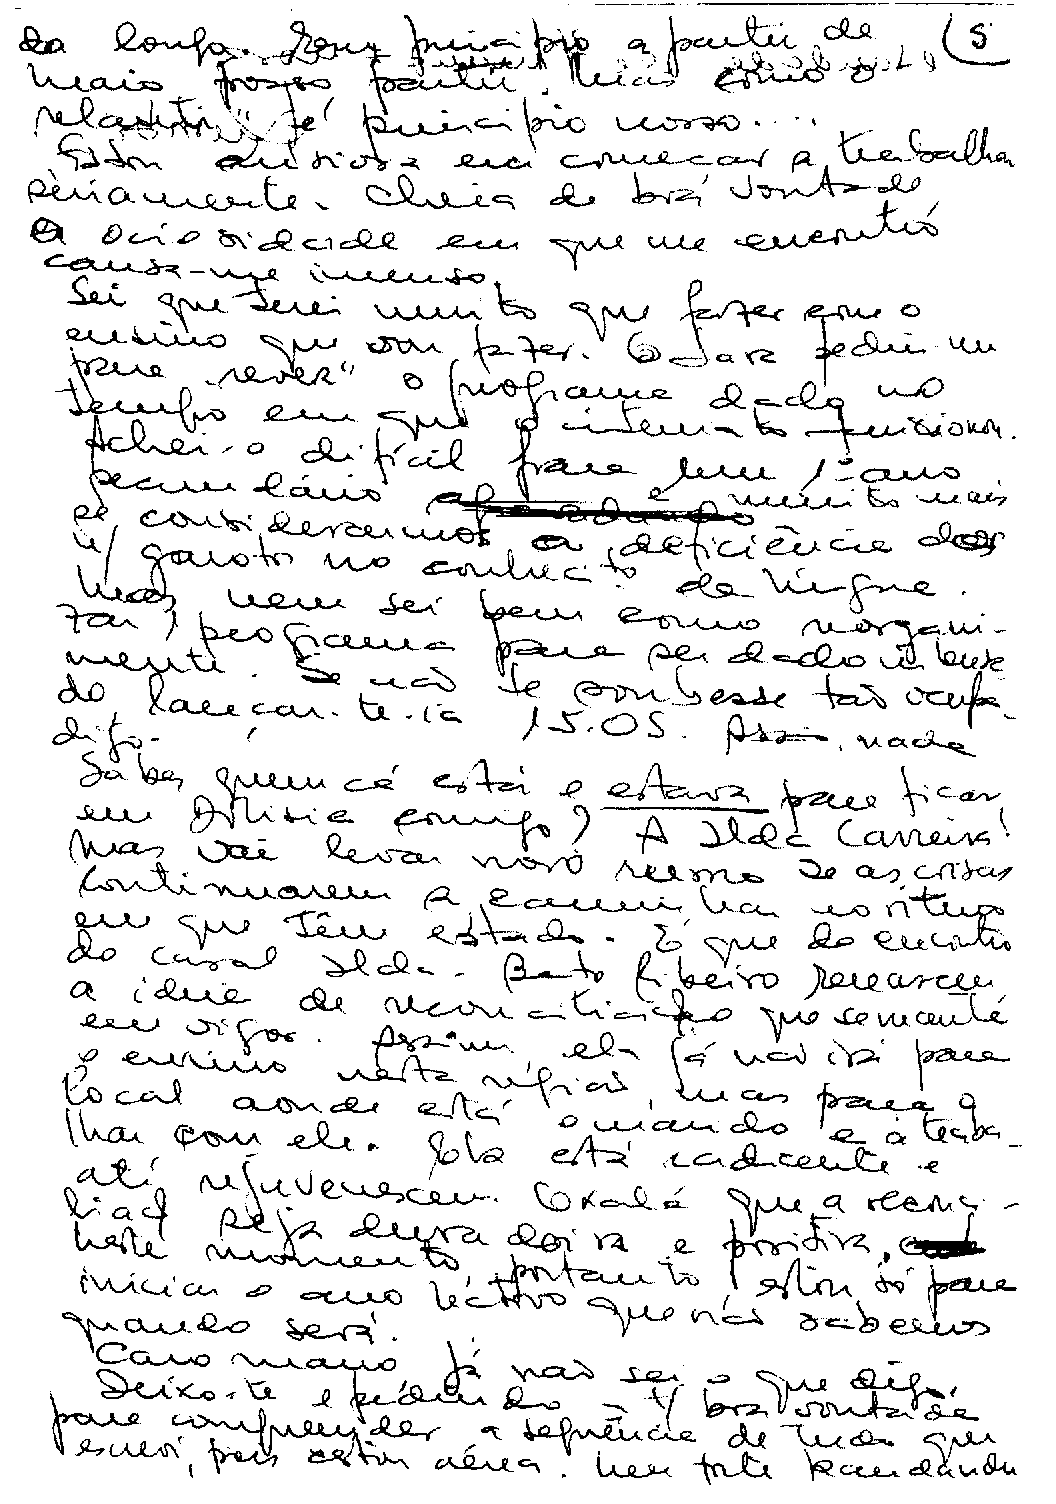 da longa. princípio a partir de 5
mais partir. Mas como o
relatório é princípio nosso...
Estou ansiosa em começar a trabalhar
seriamente. Cheia de boa vontade
A ociosidade em que me encontro
causa-me imenso.
Sei que terei muito que fazer com o
ensino que vou fazer. O Jara pediu-me
para "rever" o programa dado no
tempo em que o internato funcionou.
Achei-o difícil para um 1º ano
secundário e muito mais
se considerarmos a deficiência dos
n/ garotos no conhecitº da língua.
Mas nem sei bem como reorgani-
zar programa para ser dado
mente. Se não te soubesse tão ocupa-
do, lançar-te-ia 1 S.O.S. Assim, nada
digo.
Sabes quem cá está e estava para ficar
em comigo? A Ilda Carreira!
Mas vai levar novo rumo se as coisas
continuarem a caminhar no ritmo
em que têm estado. É que do encontro
do casal Ilda - Ribeiro renasceu
a ideia de reconciliação que se manté
em vigor. Assim, ela já não irá para
o ensino nesta região, mas para o
local aonde está e a traba-
lhar com ele. Ela está radiante e
até rejuvenesceu. Oxalá que a reconci-
liaçº seja duradoira e positiva.
neste momento, portanto, estou só para
iniciar o ano lectivo que não sabemos
quando será.
Caro mano já não sei o que digo.
Deixo-te e pedindo a t/ boa vontade
para compreender a sequência de tudo que
escrevi, pois estou aérea. Um forte